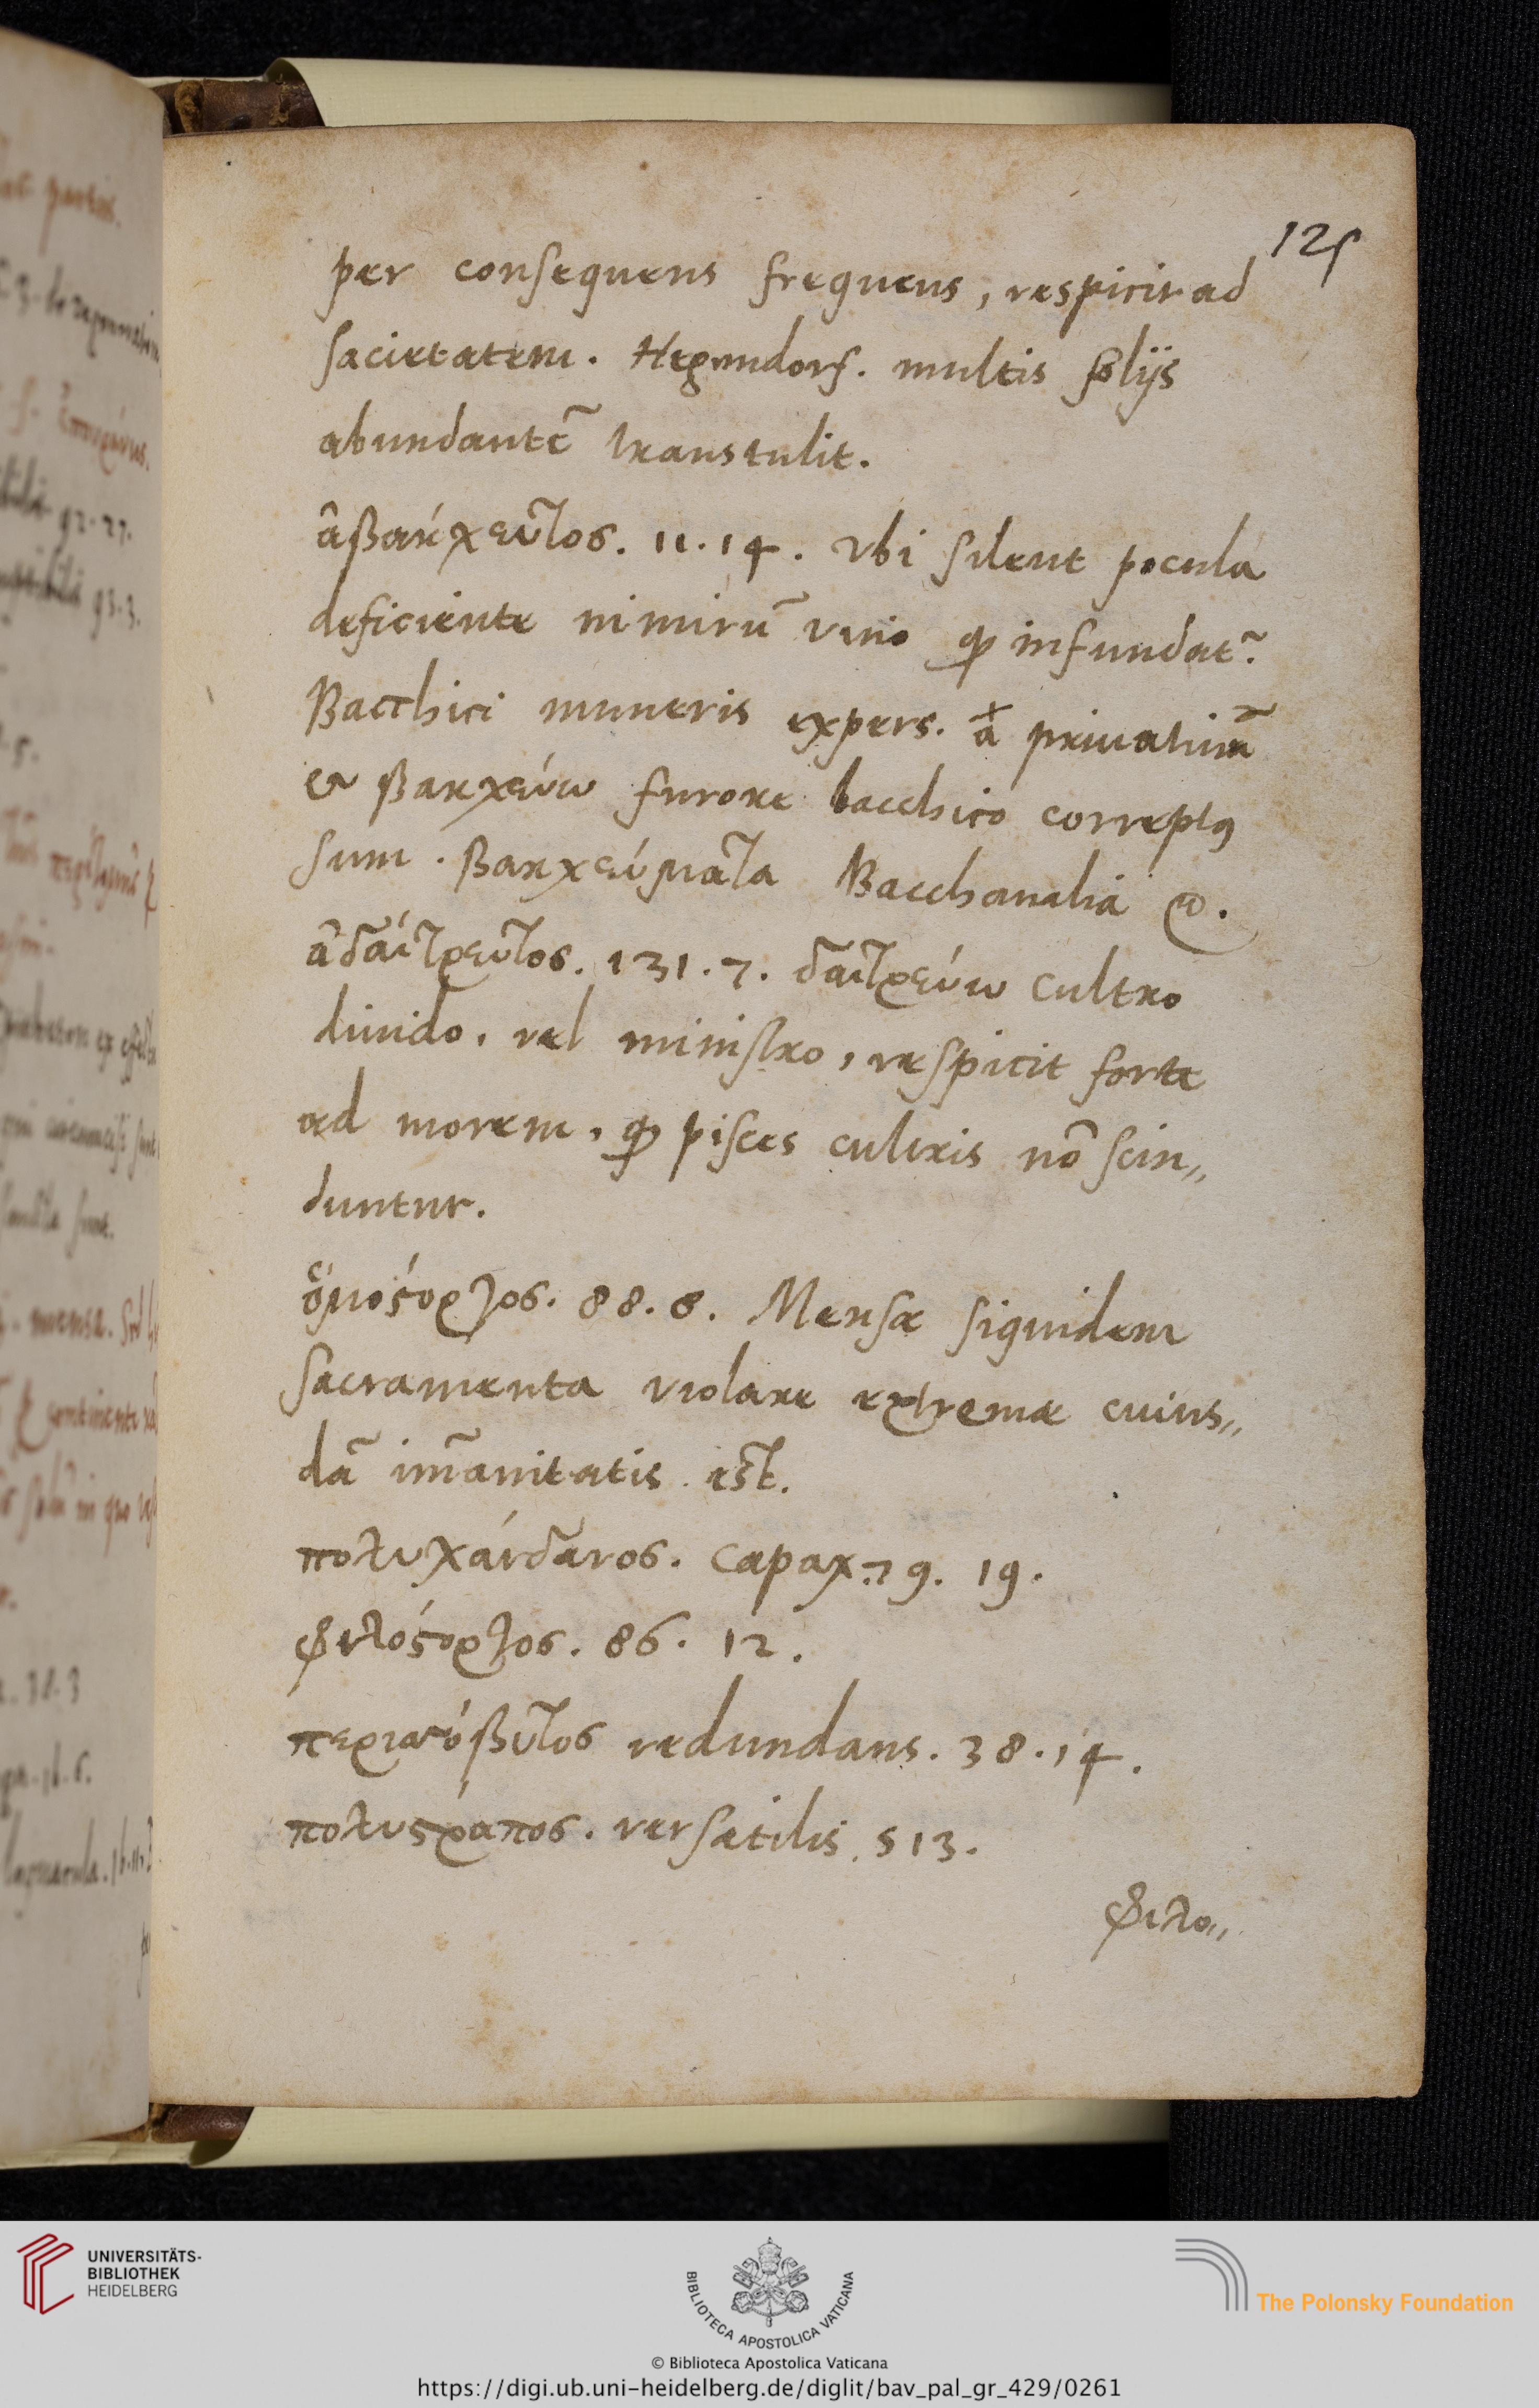 125
per consequens frequens, respicit ad
sacietatem. Hegendorf. multis folijs
abundantẽ transtulit.
ἀβάκχευτος. 11.14. Vbi silent pocula
deficiente nimirũ vino infundat~.
Bacchici muneris expers. ἀ priuatiuũ
et βακχεύω furore bacchico correptꝰ
sum. βακχεύματα Bacchanalia
ἀδαίτρευτος. 131.7. δαιτρεύω cultro
diuido, vel ministro, respicit forte
ad morem, pisces cultris nõ scin„
duntur.
ὁμόστοργος. 88.6. Mensæ siquidem
sacramenta violare extremæ cuius„
dã im̃anitatis est.
πολυχάνδανος. capax. 79. 19.
φιλόστοργος. 86. 12.
redundans. 38.14.
versatilis. 513.
φιλο„
UNIVERSITÄTS-
BIBLIOTHEK
HEIDELBERG
BIBLIOTECA APOSTOLICA VATICANA
The Polonsky Foundation
© Biblioteca Apostolica Vaticana
https://digi.ub.uni-heidelberg.de/diglit/bav_pal_gr_429/0261